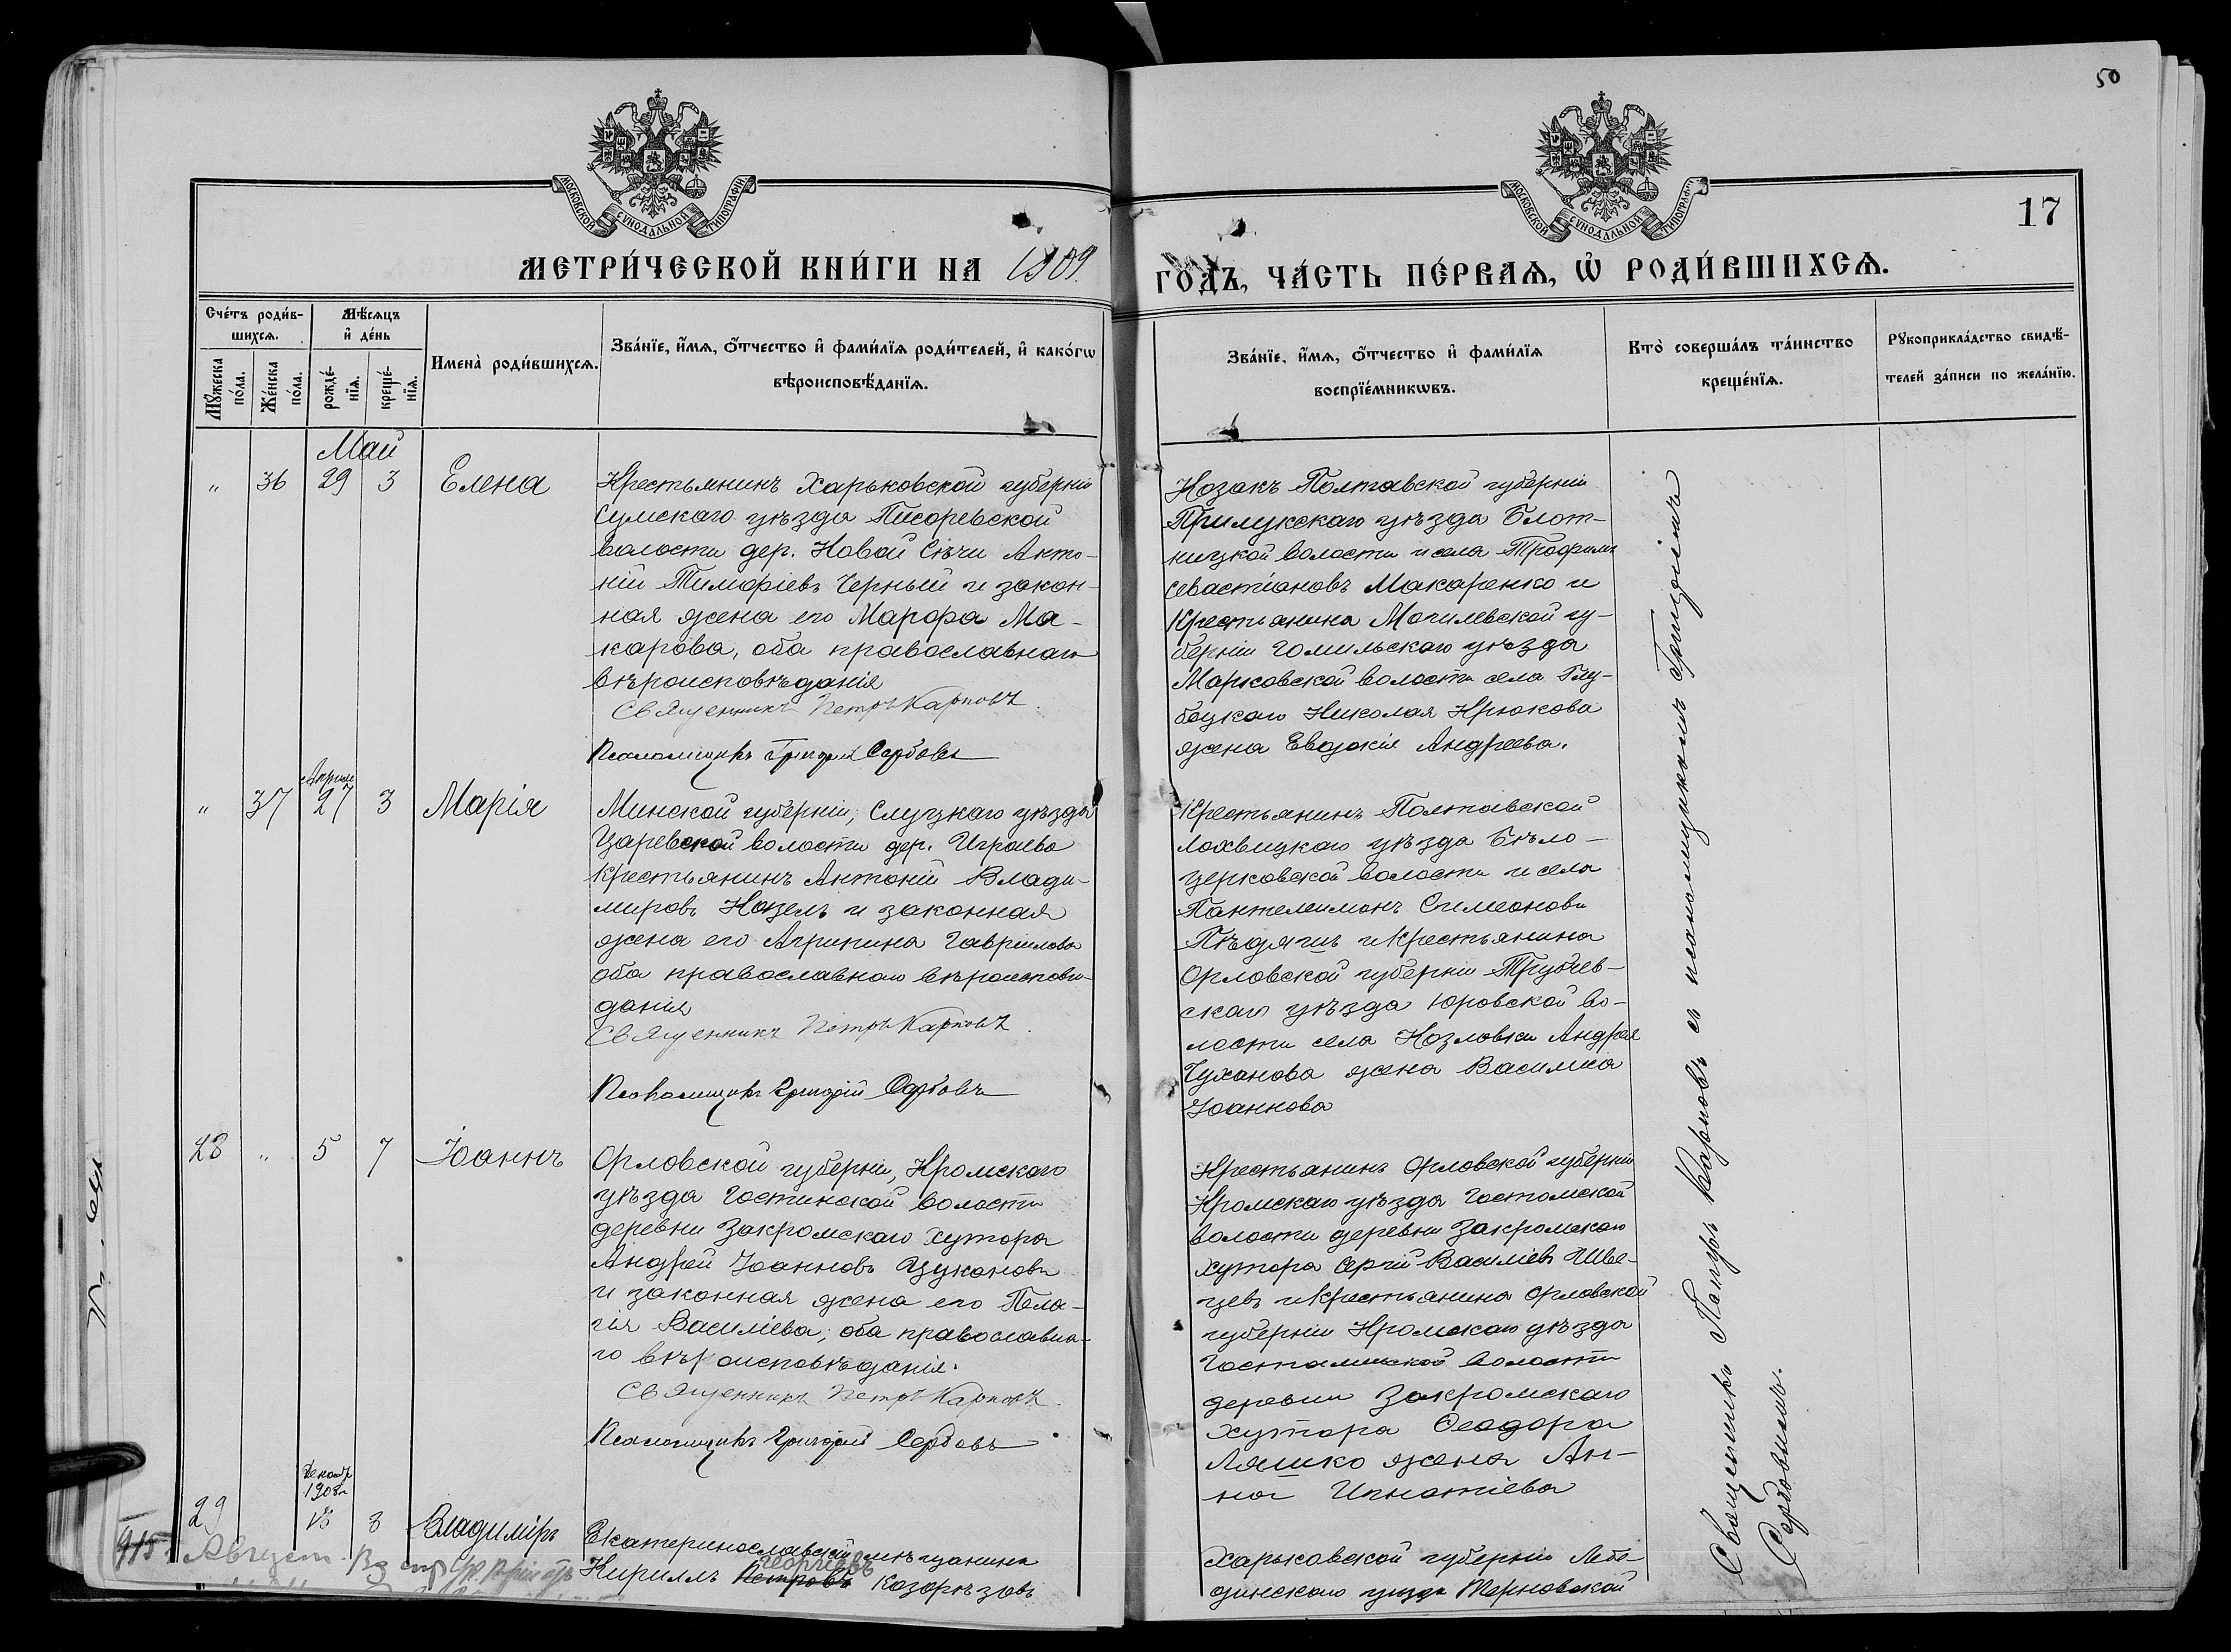 50
МОСКОВСКОЙ СУНОДАЛЬНОЙ ТИПОГРАФІИ
МОСКОВСКОЙ СУНОДАЛЬНОЙ ТИПОГРАФІИ
17
МЕТРИ́ЧЕСКОЙ КНИ́ГИ НА 1909
ГОДЪ, ЧА́СТЬ ПЕ́РВАѦ, Ѡ҆ РОДИ́ВШИХСѦ.
Сче́тъ роди́в-
шихсѧ.
Мѣ́сѧцъ
и҆ де́нь
Мꙋ́жеска
по́ла.
Же́нска
по́ла.
рожде́-
нїѧ.
креще́-
нїѧ.
Имена̀ роди́вшихсѧ.
Зва́нїе, и҆́мѧ, ѻ҆́тчество и҆ фами́лїѧ роди́телей, и҆ како́гѡ
вѣроисповѣ́данїѧ.
Зва́нїе, и҆́мѧ, ѻ҆́тчество и҆ фами́лїѧ
воспрїе́мникѡвъ.
Кто̀ соверша́лъ та́инство
креще́нїѧ.
Рꙋкоприкла́дство свидѣ́-
телей за́писи по жела́нїю.
Май
" 36 29 3 Елена
Крестьянинъ Харьковской губерніи
Сумскаго уѣзда Писаревской
волости дер. Новой Сѣчи Анто-
ній Тимофіевъ Черный и закон-
ная жена его Марфа Ма-
карова, оба православнаго
вѣроисповѣданія
Священникъ Петръ Карповъ.
Псаломщикъ Григорій Сербовъ
Козакъ Полтавской губерніи
Прилукскаго уѣзда Блот-
ницкой волости и села Трофимъ
Севастіановъ Макаренко и
Крестьянина Могилевской гу-
берніи Гомильскаго уѣзда
Марковской волости села Глу-
боцкаго Николая Крюкова
жена Евдокія Андреева.
Апрѣля
" 37 27 3 Марія
Минской губерніи, Слуцкаго уѣзда
Царевской волости дер. Играево
крестьянинъ Антоній Влади-
міровъ Козелъ и законная
жена его Агрипина Гаврилова
оба православнаго вѣроисповѣ-
данія
Священникъ Петръ Карповъ.
Псаломщикъ Григорій Сербовъ
Крестьянинъ Полтавской
Лохвицкаго уѣзда Бѣло-
церковской волости и села
Пантелеимонъ Симеоновъ
и крестьянина
Орловской губерніи Трубчев-
скаго уѣзда Юровской во-
лости села Козловки Андрея
Чуханова жена Василиса
Іоаннова
28 " 5 7 Іоаннъ
Орловской губерніи, Кромскаго
уѣзда Гостинской волости
деревни Закромскаго Хутора
Андрей Іоанновъ Цукановъ
и законная жена его Пела-
гія Василіева, оба православна-
го вѣроисповѣданія.
Священникъ Петръ Карповъ.
Псаломщикъ Григорій Сербовъ
Крестьянинъ Орловской губерніи
Кромскаго уѣзда Гостомской
волости деревни Закромскаго
хутора Сергій Василіевъ Шве-
цевъ и крестьянина Орловской
губерніи Кромскаго уѣзда
Гостомльской волости
деревни Закромскаго
хутора Ѳеодора
Ляшко жена Ан-
на Игнатіева
Декабр
1908 г
29 18 8 Владиміръ
Екатеринославскій мѣщанинъ
Георгіевъ
Кириллъ Петровъ Козорѣзовъ
Харьковской губерніи Лебе-
динскаго уѣзда Терновской
Священникъ Петръ Карповъ съ псаломщикомъ Григоріемъ
Сербовымъ.
915 Август